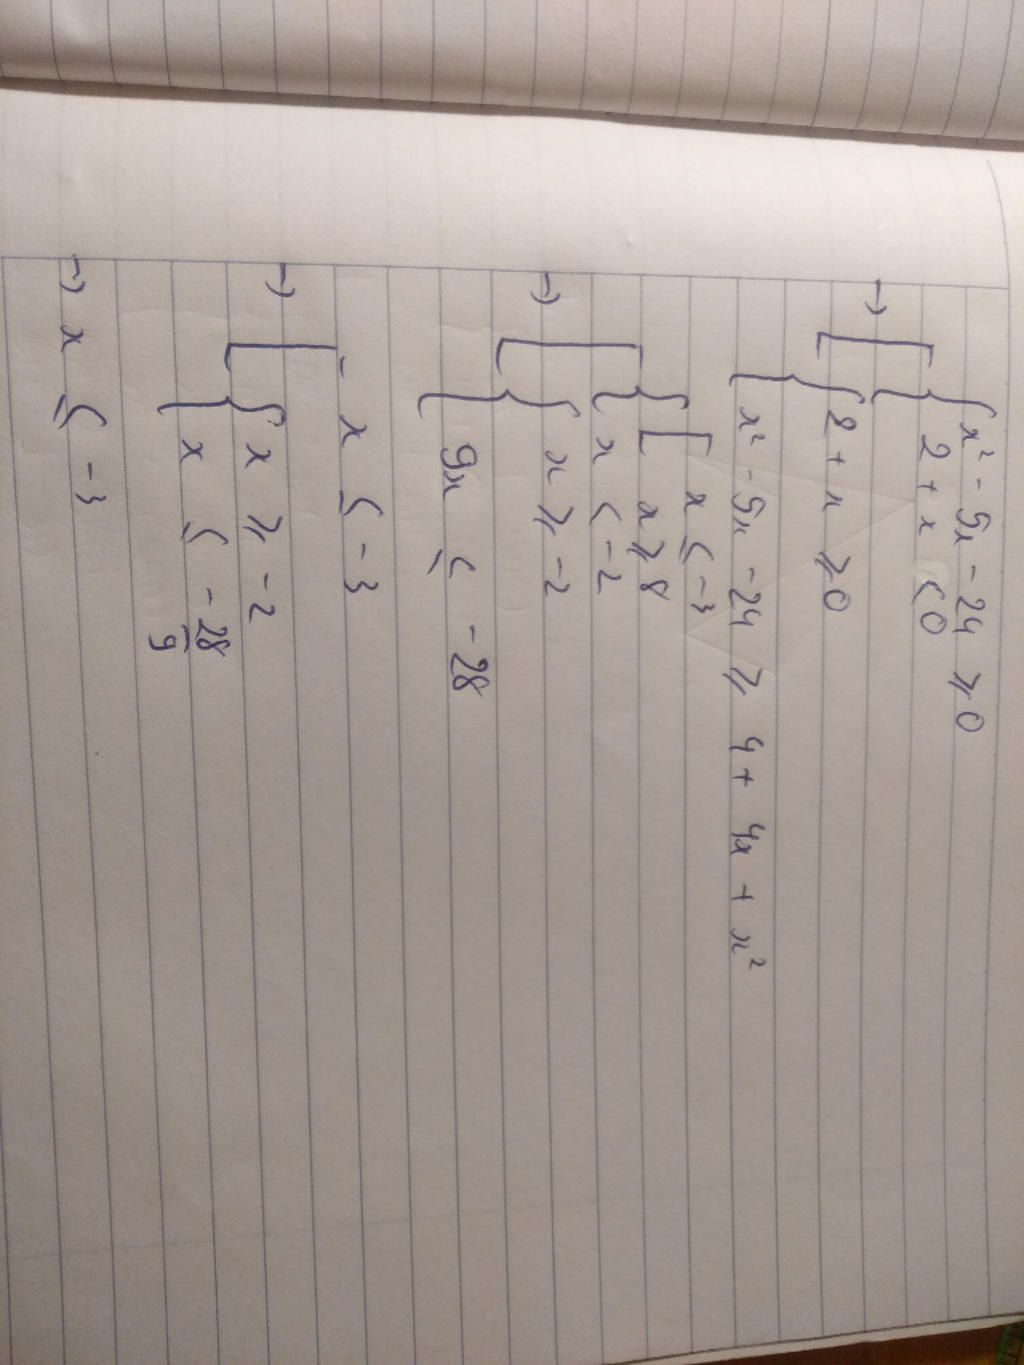 x² - 5x - 24 ≥ 0
2 + x < 0
→
2 + x ≥ 0
x² - 5x - 24 ≥ 4 + 4x + x²
x ≤ -3
x ≥ 8
x < -2
→
x ≥ -2
9x ≤ -28
x ≤ -3
→
x ≥ -2
x ≤ -28/9
→ x ≤ -3